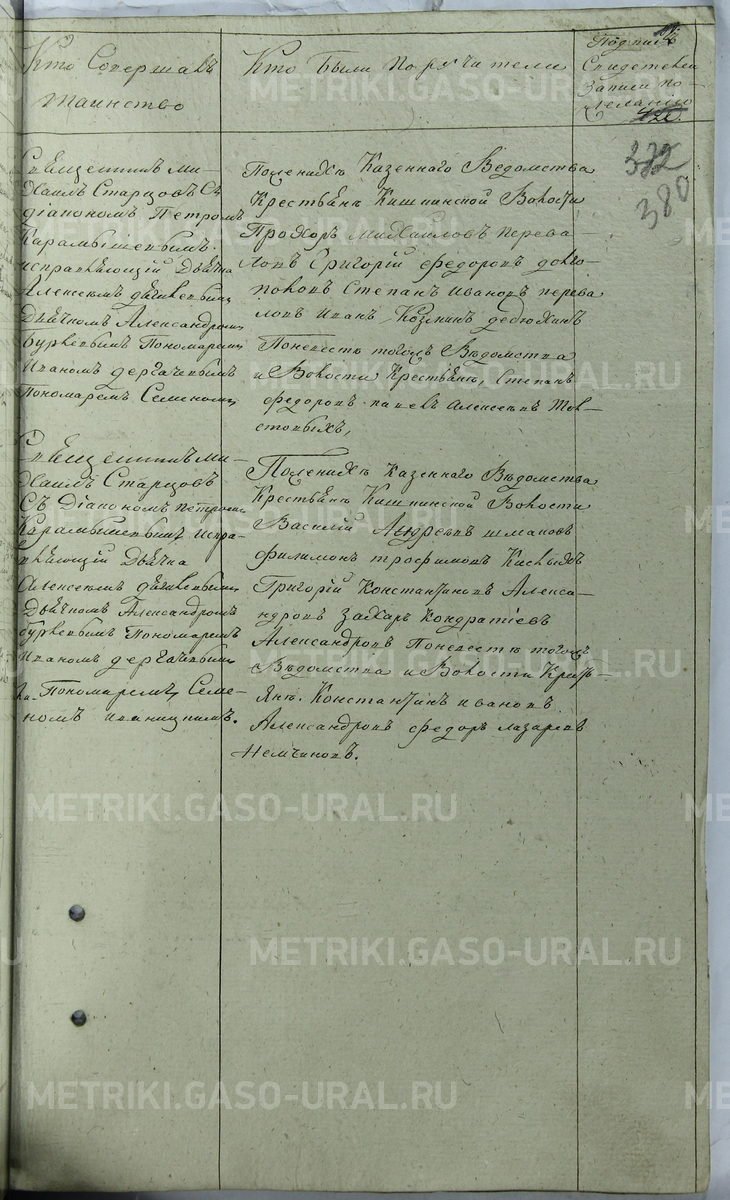 Кто Совершалъ
таинство
Кто были поручители
Подпись
Свидетелей
Записи по
желанію
372
380
Священникъ Ми-
хаилъ Старцовъ съ
діакономъ Петромъ
Карамышевымъ
исправляющій дьячка
Алексеемъ
Дьячкомъ Александромъ
Пономаремъ
Иваномъ дергачевымъ
Пономаремъ Семеномъ
По женихѣ Казеннаго Ведомства
Крестьянѣ Кишкинской Волости
Прохоръ Михаиловъ перева-
ловъ Григорій федоровъ долго-
половъ Степанъ Ивановъ перева
ловъ Иванъ Козминъ дедюхинъ
По невестѣ тогожъ Вѣдомства
и Волости Крестьянѣ, Степанъ
федоровъ павелъ алексеевъ Тол-
стовыхъ,
Священникъ Ми-
хаилъ Старцовъ
Съ Діакономъ петромъ
Карамышевымъ испра-
вляющій Дьячка
Алексеемъ
Дьячкомъ Александромъ
Пономаремъ
Иваномъ дергачевымъ
Пономаремъ Семе-
номъ
По женихѣ Казеннаго Вѣдомства
Крестьянѣ Кишкинской Волости
Василій Андреевъ шмаковъ
филимонъ трофимовъ
Григорій Константиновъ Алекса-
ндровъ Захаръ Кондратіевъ
Александровъ По невестѣ тогожъ
Вѣдомства и Волости Кресть-
янѣ. Константинъ ивановъ
Александровъ федоръ лазаревъ
Немчиновъ.
METRIKI.GASO-URAL.RU